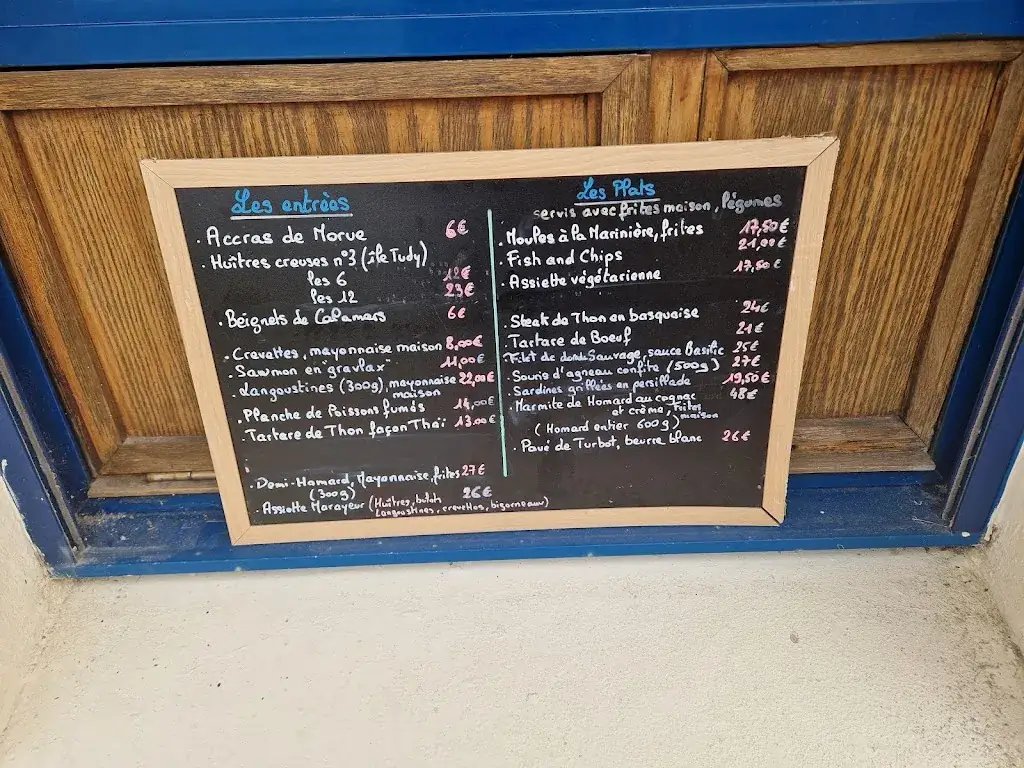 Les entrées
. Accras de Morue 6€
. Huîtres creuses n°3 (île Tudy)
les 6 12€
les 12 23€
. Beignets de Calamars 6€
. Crevettes, mayonnaise maison 8,00€
. Sawmon en "gravlax" 11,00€
. Langoustines (300g), mayonnaise 22,00€
maison
. Planche de Poissons fumés 14,00€
. Tartare de Thon façon Thaï 13.00€
. Demi-Homard, Mayonnaise, frites 27€
(300g)
. Assiette Marayeur (Huîtres, bulot 26€
Langoustines, crevettes, bigorneaux)
Les Plats
servis avec frites maison, légumes
. Moules à la Marinière, frites 17,50€
. Fish and Chips 21,00€
. Assiette végétarienne 17,50€
. Steak de Thon en basquaise 24€
. Tartare de Boeuf 21€
. Filet de Sauvage, sauce Basilic 25€
. Souris d'agneau confite (500g) 27€
. Sardines grillées en persillade 19,50€
. Marmite de Homard au cognac 48€
et crème, frites
maison
(Homard entier 600g)
. Pavé de Turbot, beurre blanc 26€